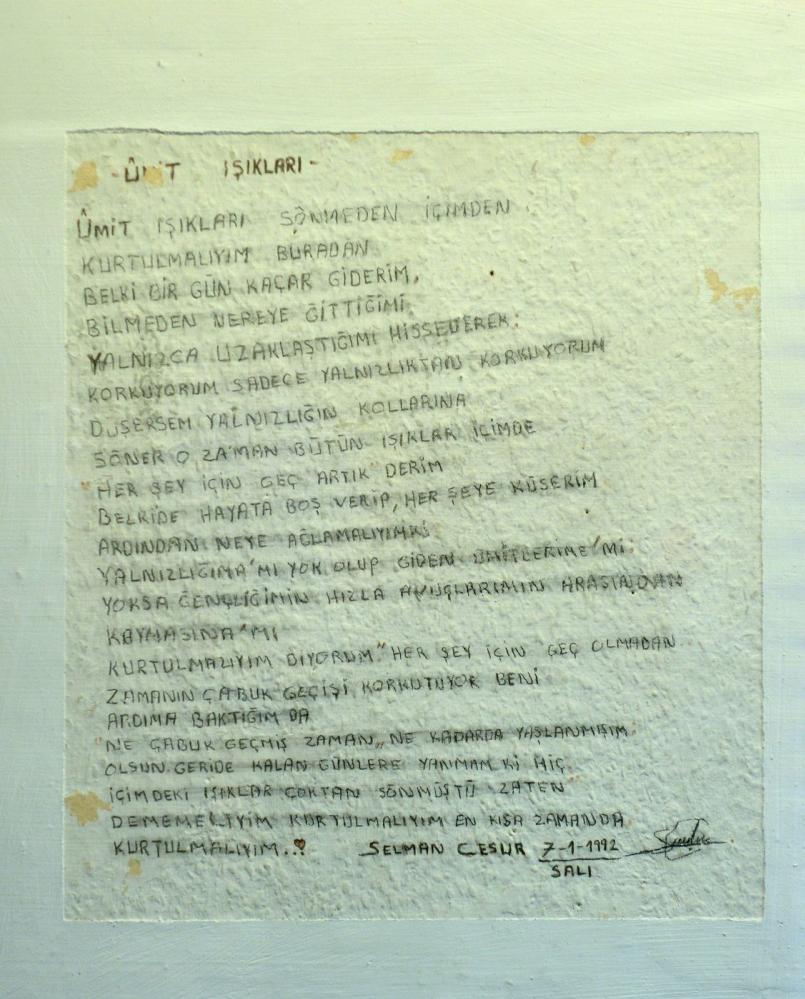 - ÛMİT IŞIKLARI -
ÛMİT IŞIKLARI SÖNMEDEN İÇİMDEN
KURTULMALIYIM BURADAN
BELKİ BİR GÜN KAÇAR GİDERİM,
BİLMEDEN NEREYE GİTTİĞİMİ
YALNIZCA UZAKLAŞTIĞIMI HİSSEDEREK.
KORKUYORUM SADECE YALNIZLIKTAN KORKUYORUM
DÜŞERSEM YALNIZLIĞIN KOLLARINA
SÖNER O ZAMAN BÜTÜN IŞIKLAR İÇİMDE
"HER ŞEY İÇİN GEÇ ARTIK" DERİM
BELKİDE HAYATA BOŞ VERİP, HER ŞEYE KÜSERİM
ARDINDAN NEYE AĞLAMALIYIMKİ
YALNIZLIĞIMA'MI YOK OLUP GİDEN ÜMİTLERİME'Mİ
YOKSA GENÇLİĞİMİN HIZLA AVUÇLARIMIN ARASINDAN
KAYMASINA'MI
KURTULMALIYIM DİYORUM." HER ŞEY İÇİN GEÇ OLMADAN
ZAMANIN ÇABUK GEÇİŞİ KORKUTUYOR BENİ
ARDIMA BAKTIĞIM DA
"NE ÇABUK GEÇMİŞ ZAMAN,, NE KADARDA YAŞLANMIŞIM
OLSUN GERİDE KALAN GÜNLERE YANMAM Kİ HİÇ
İÇİMDEKİ IŞIKLAR ÇOKTAN SÖNMÜŞTÜ ZATEN"
DEMEMELİYİM KURTULMALIYIM EN KISA ZAMANDA
KURTULMALIYIM..! SELMAN CESUR 7-1-1992
SALI